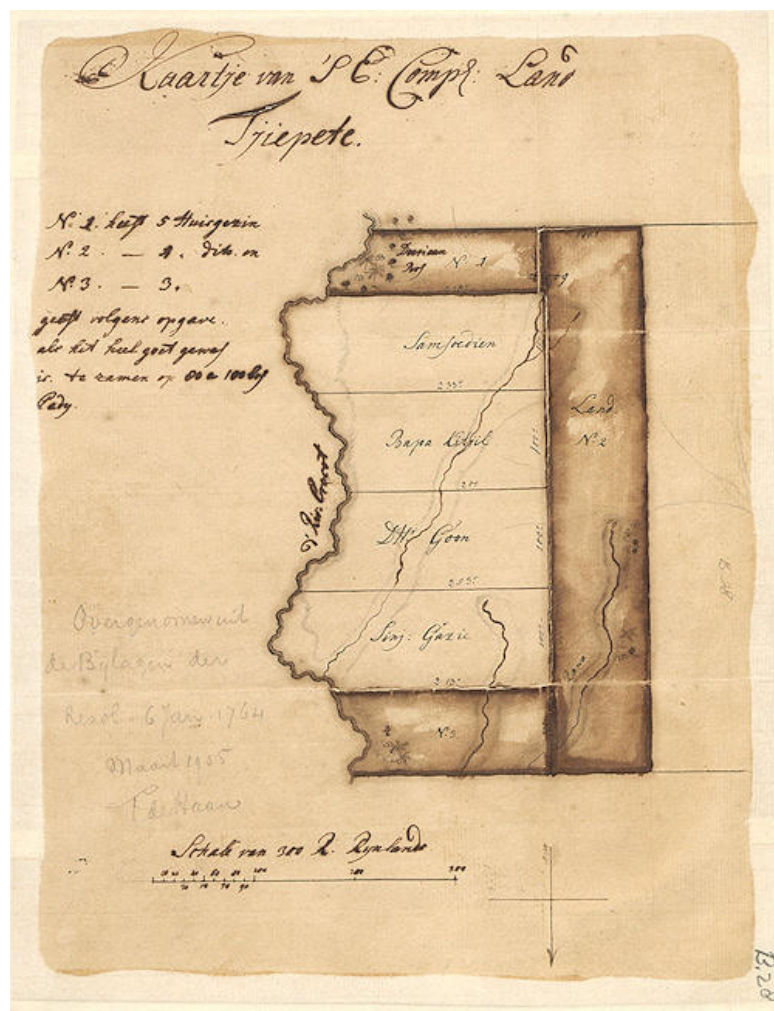 Kaartje van 'S E: Comp: Land
Tjiepete.
No. 1. heeft 5 Huisgezin
No. 2. — 4. dito en
No. 3. — 3.
geeft volgens opgave.
als het heel goet gewas
is. te zamen op 80 a 100
Pady.
Doeriaan
Bos
No. 1
Samsoedien
235
Land
No. 2
Bapa Ketjil
200
Goon
Sinj: Gazie
215
No. 3
Overgenomen uit
de Bijlagen der
Resol. 6 Jan. 1764
Maart 1905
F de Haan
Schale van 300 R. Rynlands
100 200 300
B.28